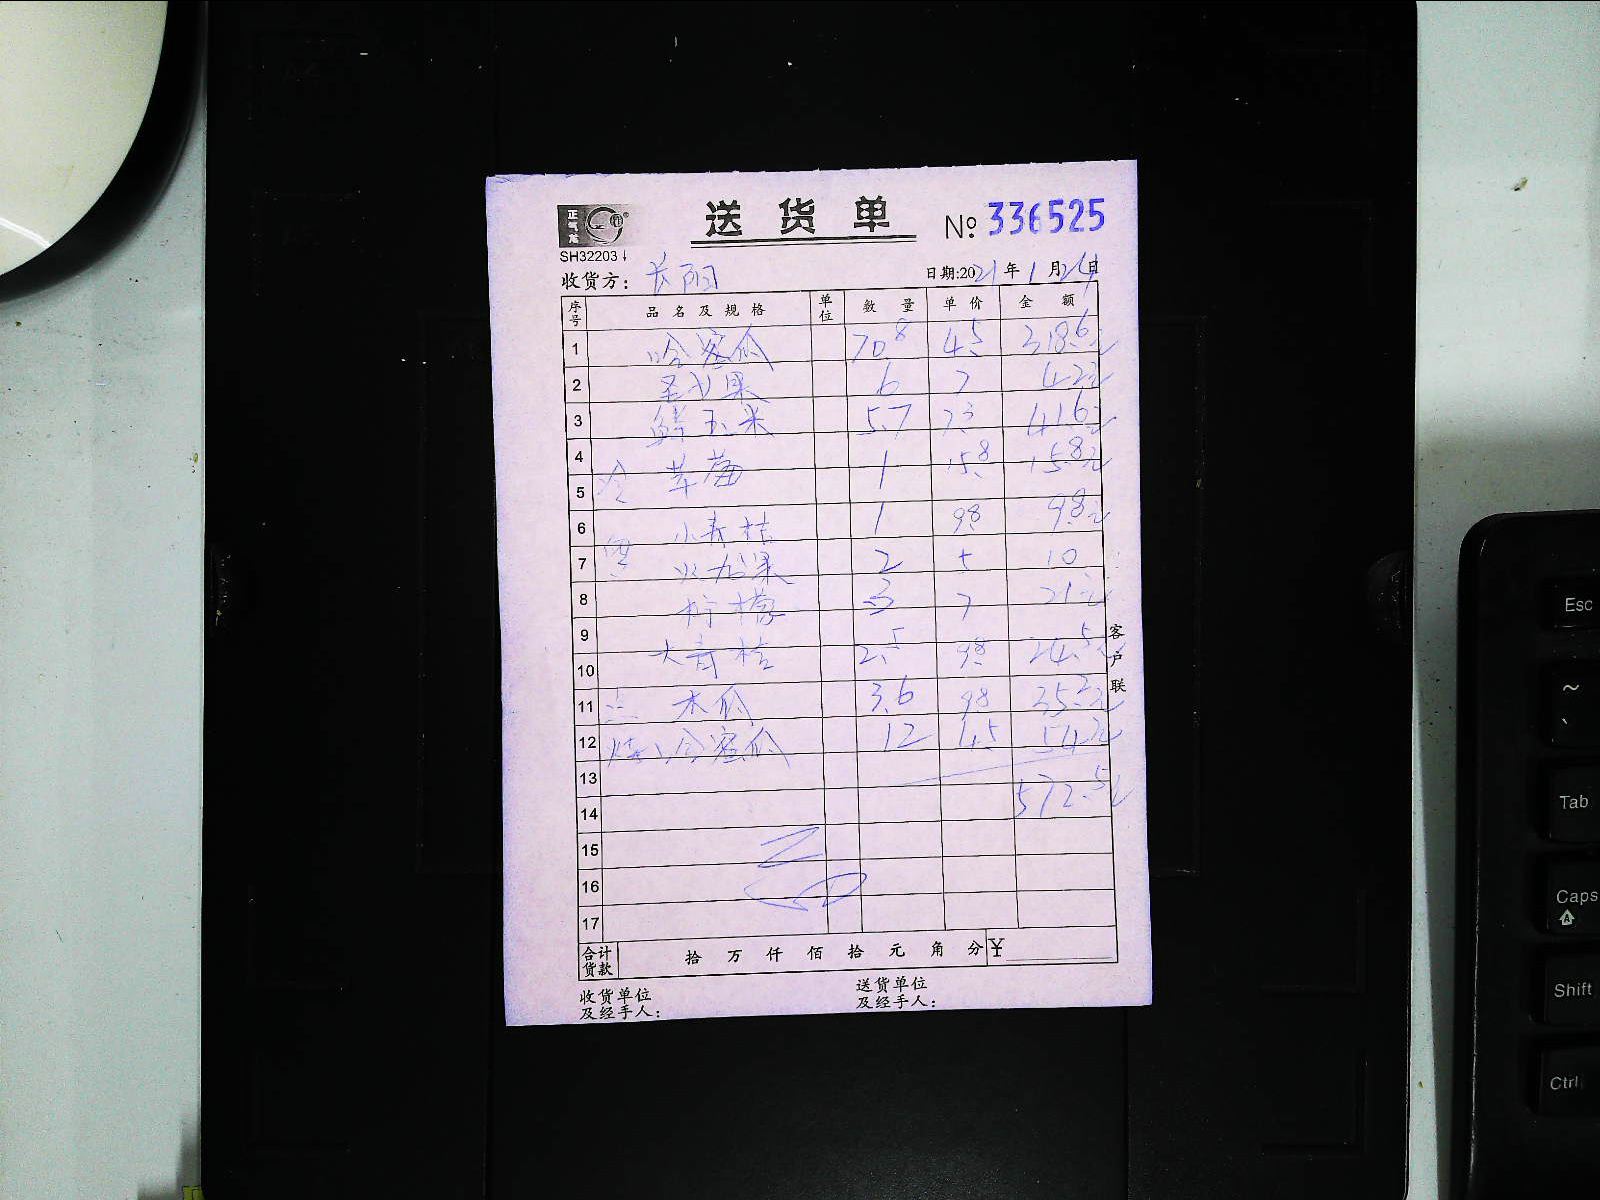 送货单 № 336525
SH32203
收货方：长阳 日期:2021年1月24日
序号 品名及规格 单位 数量 单价 金额
1 哈密瓜 70.8 4.5 318.6元
2 圣女果 6 7 42元
3 鲜玉米 5.7 7.3 41.6元
4 冷 草莓 1 15.8 15.8元
5
6 小青桔 1 9.8 9.8元
7 火龙果 2 5 10
8 柠檬 3 7 21元
9 大青桔 2.5 9.8 24.5元
10
11 木瓜 3.6 9.8 35.2元
12 哈密瓜 12 4.5 54元
13
14 572.5元
15
16
17
合计货款 拾 万 仟 佰 拾 元 角 分 ¥
收货单位及经手人： 送货单位及经手人：
客户联
Esc
~
`
Tab
Caps
Shift
Ctrl